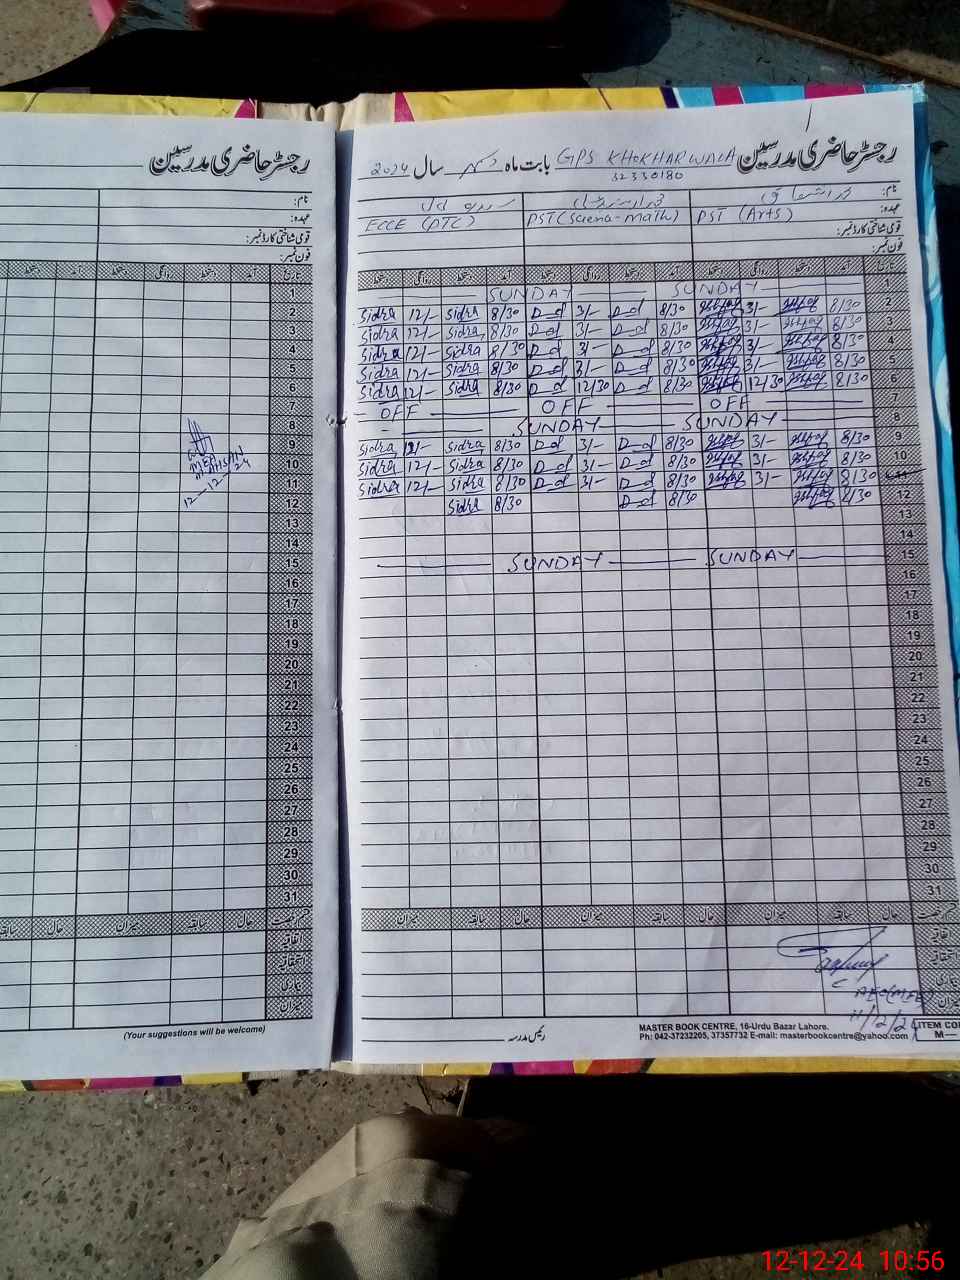 رجسٹر حاضری مدرسین
نام:
عہدہ:
قومی شناختی کارڈ نمبر:
فون نمبر:
تاریخ آمد دستخط روانگی دستخط آمد
1
2
3
4
5
6
7
8
9
10
11
12
13
14
15
16
17
18
19
20
21
22
23
24
25
26
27
28
29
30
31
MEA
AHSAN
12-12-24
حال سابقہ میزان حال سابقہ
(Your suggestions will be welcome)
رجسٹر حاضری مدرسین GPS KHOKHARWALA بابت ماہ دسمبر سال 2024
32330180
نام:
عہدہ: PST (Arts) PST (Sciena-Math) ECCE (PTC)
قومی شناختی کارڈ نمبر:
فون نمبر:
تاریخ آمد دستخط روانگی دستخط آمد دستخط روانگی دستخط آمد دستخط روانگی دستخط
1 SUNDAY SUNDAY
2 8/30 3/- 8/30 3/- 8/30 Sidra 12/- Sidra
3 8/30 3/- 8/30 3/- 8/30 Sidra 12/- Sidra
4 8/30 3/- 8/30 3/- 8/30 Sidra 12/- Sidra
5 8/30 3/- 8/30 3/- 8/30 Sidra 12/- Sidra
6 8/30 12/30 8/30 12/30 8/30 Sidra 12/- Sidra
7 OFF OFF OFF
8 SUNDAY SUNDAY
9 8/30 3/- 8/30 3/- 8/30 Sidra 12/- Sidra
10 8/30 3/- 8/30 3/- 8/30 Sidra 12/- Sidra
11 8/30 3/- 8/30 3/- 8/30 Sidra 12/- Sidra
12 8/30 8/30 8/30 Sidra
13
14
15 SUNDAY SUNDAY
16
17
18
19
20
21
22
23
24
25
26
27
28
29
30
31
قسم رخصت حال سابقہ میزان حال سابقہ میزان حال سابقہ میزان
اتفاقیہ
استحقاقیہ
بیماری
میزان
AEO (MEE)
11/12/24
رئیس مدرسہ
MASTER BOOK CENTRE, 16-Urdu Bazar Lahore.
Ph: 042-37232205, 37357732 E-mail: masterbookcentre@yahoo.com
ITEM COD
M—
12-12-24 10:56